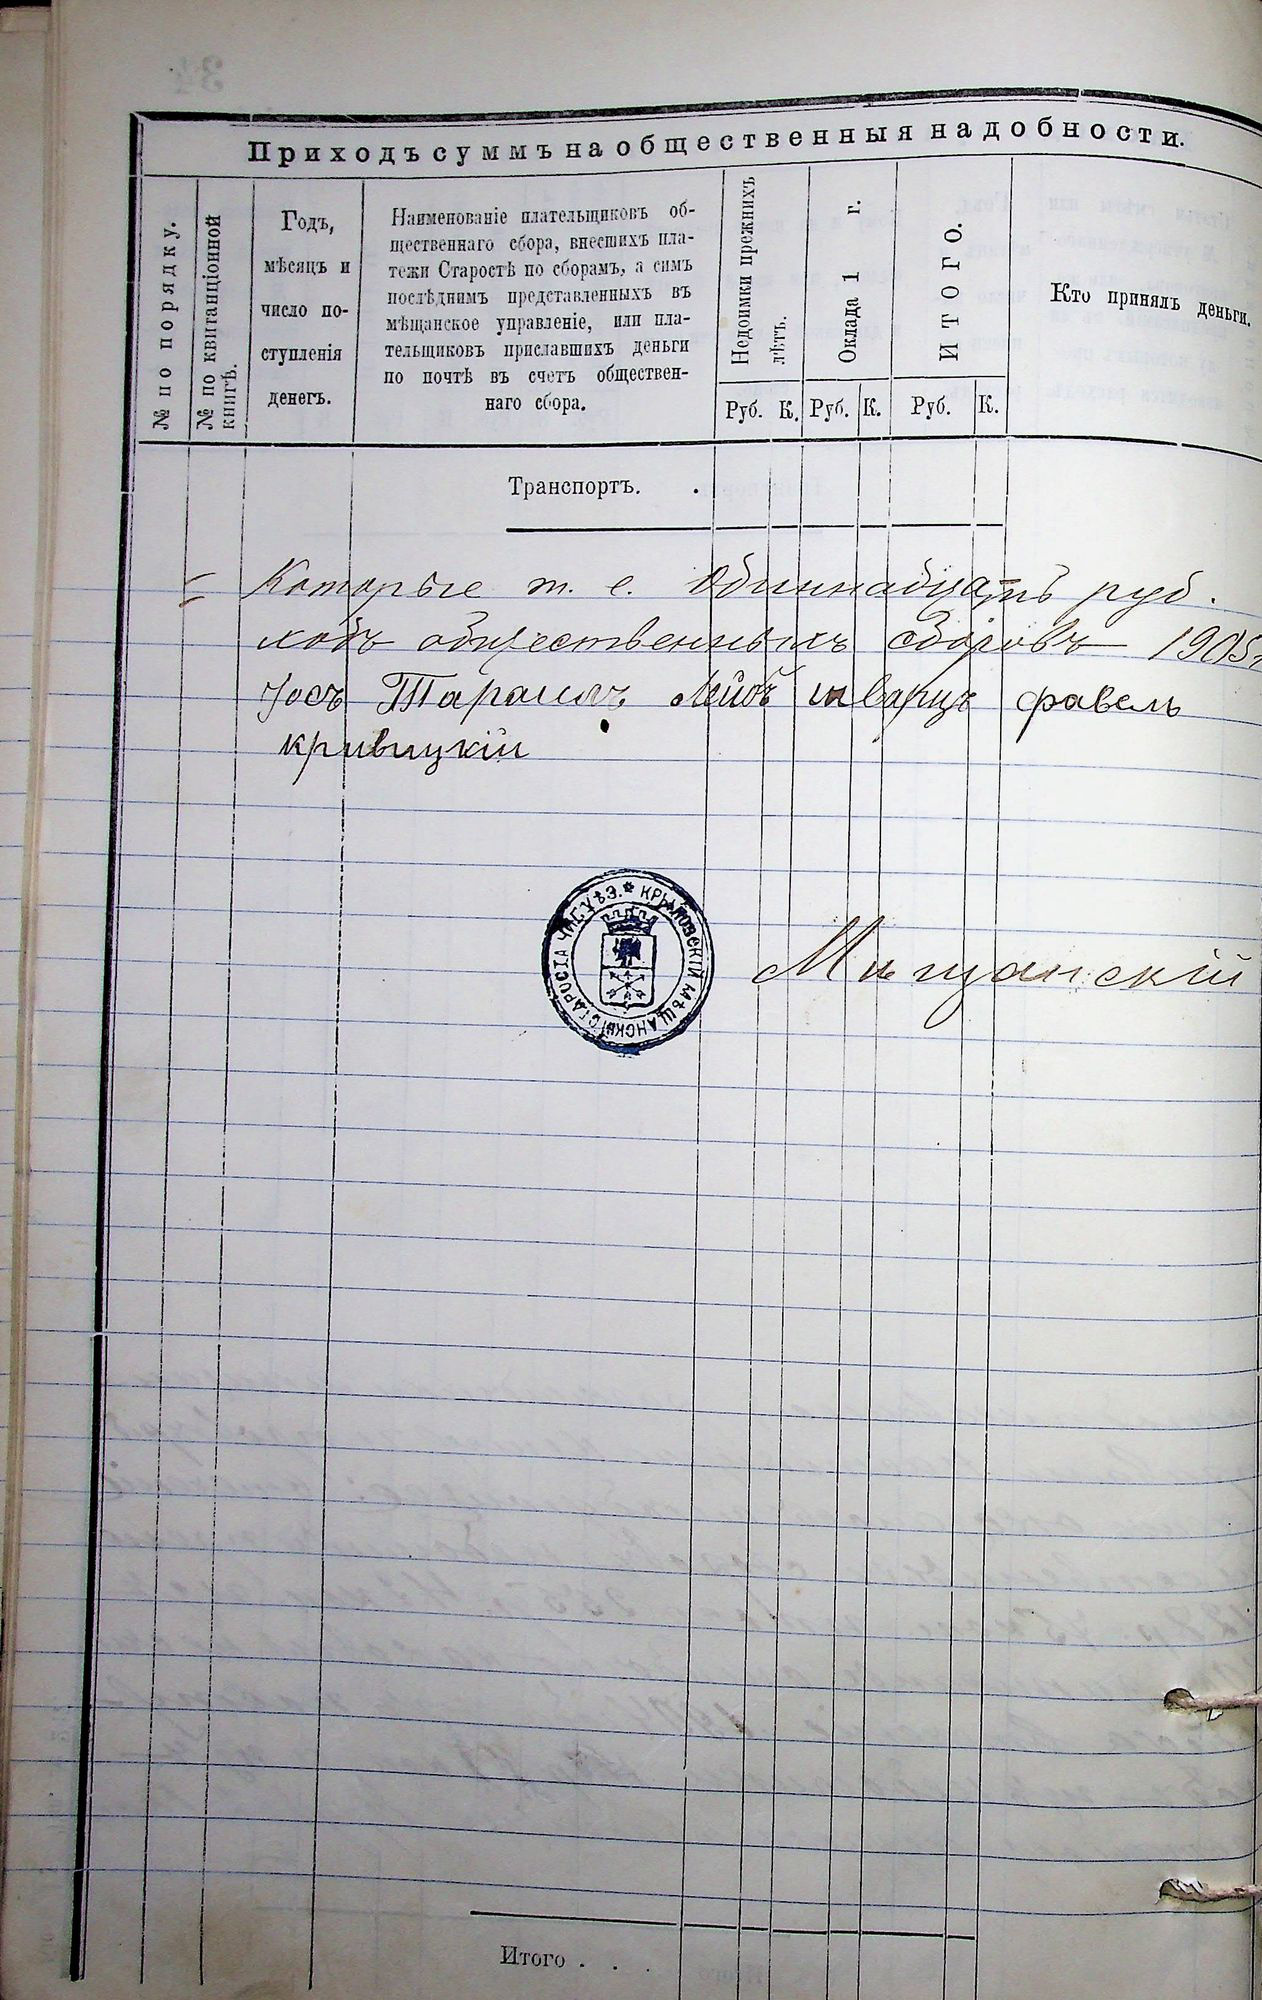 Приходъ суммъ на общественныя надобности.
№ по порядку.
№ по квитанціонной
книгѣ.
Годъ,
мѣсяцъ и
число по-
ступленія
денегъ.
Наименованіе плательщиковъ об-
щественнаго сбора, внесшихъ пла-
тежи Старостѣ по сборамъ, а симъ
послѣднимъ представленныхъ въ
мѣщанское управленіе, или пла-
тельщиковъ приславшихъ деньги
по почтѣ въ счетъ обществен-
наго сбора.
Недоимки прежнихъ
лѣтъ.
Оклада 1 г.
ИТОГО.
Кто принялъ деньги.
Руб. К. Руб. К. Руб. К.
Транспортъ. .
Которые т. е. Одиннадцать руб.
общественныхъ сборовъ 1905
Лейбъ шварцъ фавель
кривицкій
КРЫЛОВСКІЙ МѢЩАНСКІЙ СТАРОСТА ЧИГ. УѢЗ. *
Мѣщанскій
Итого . . .